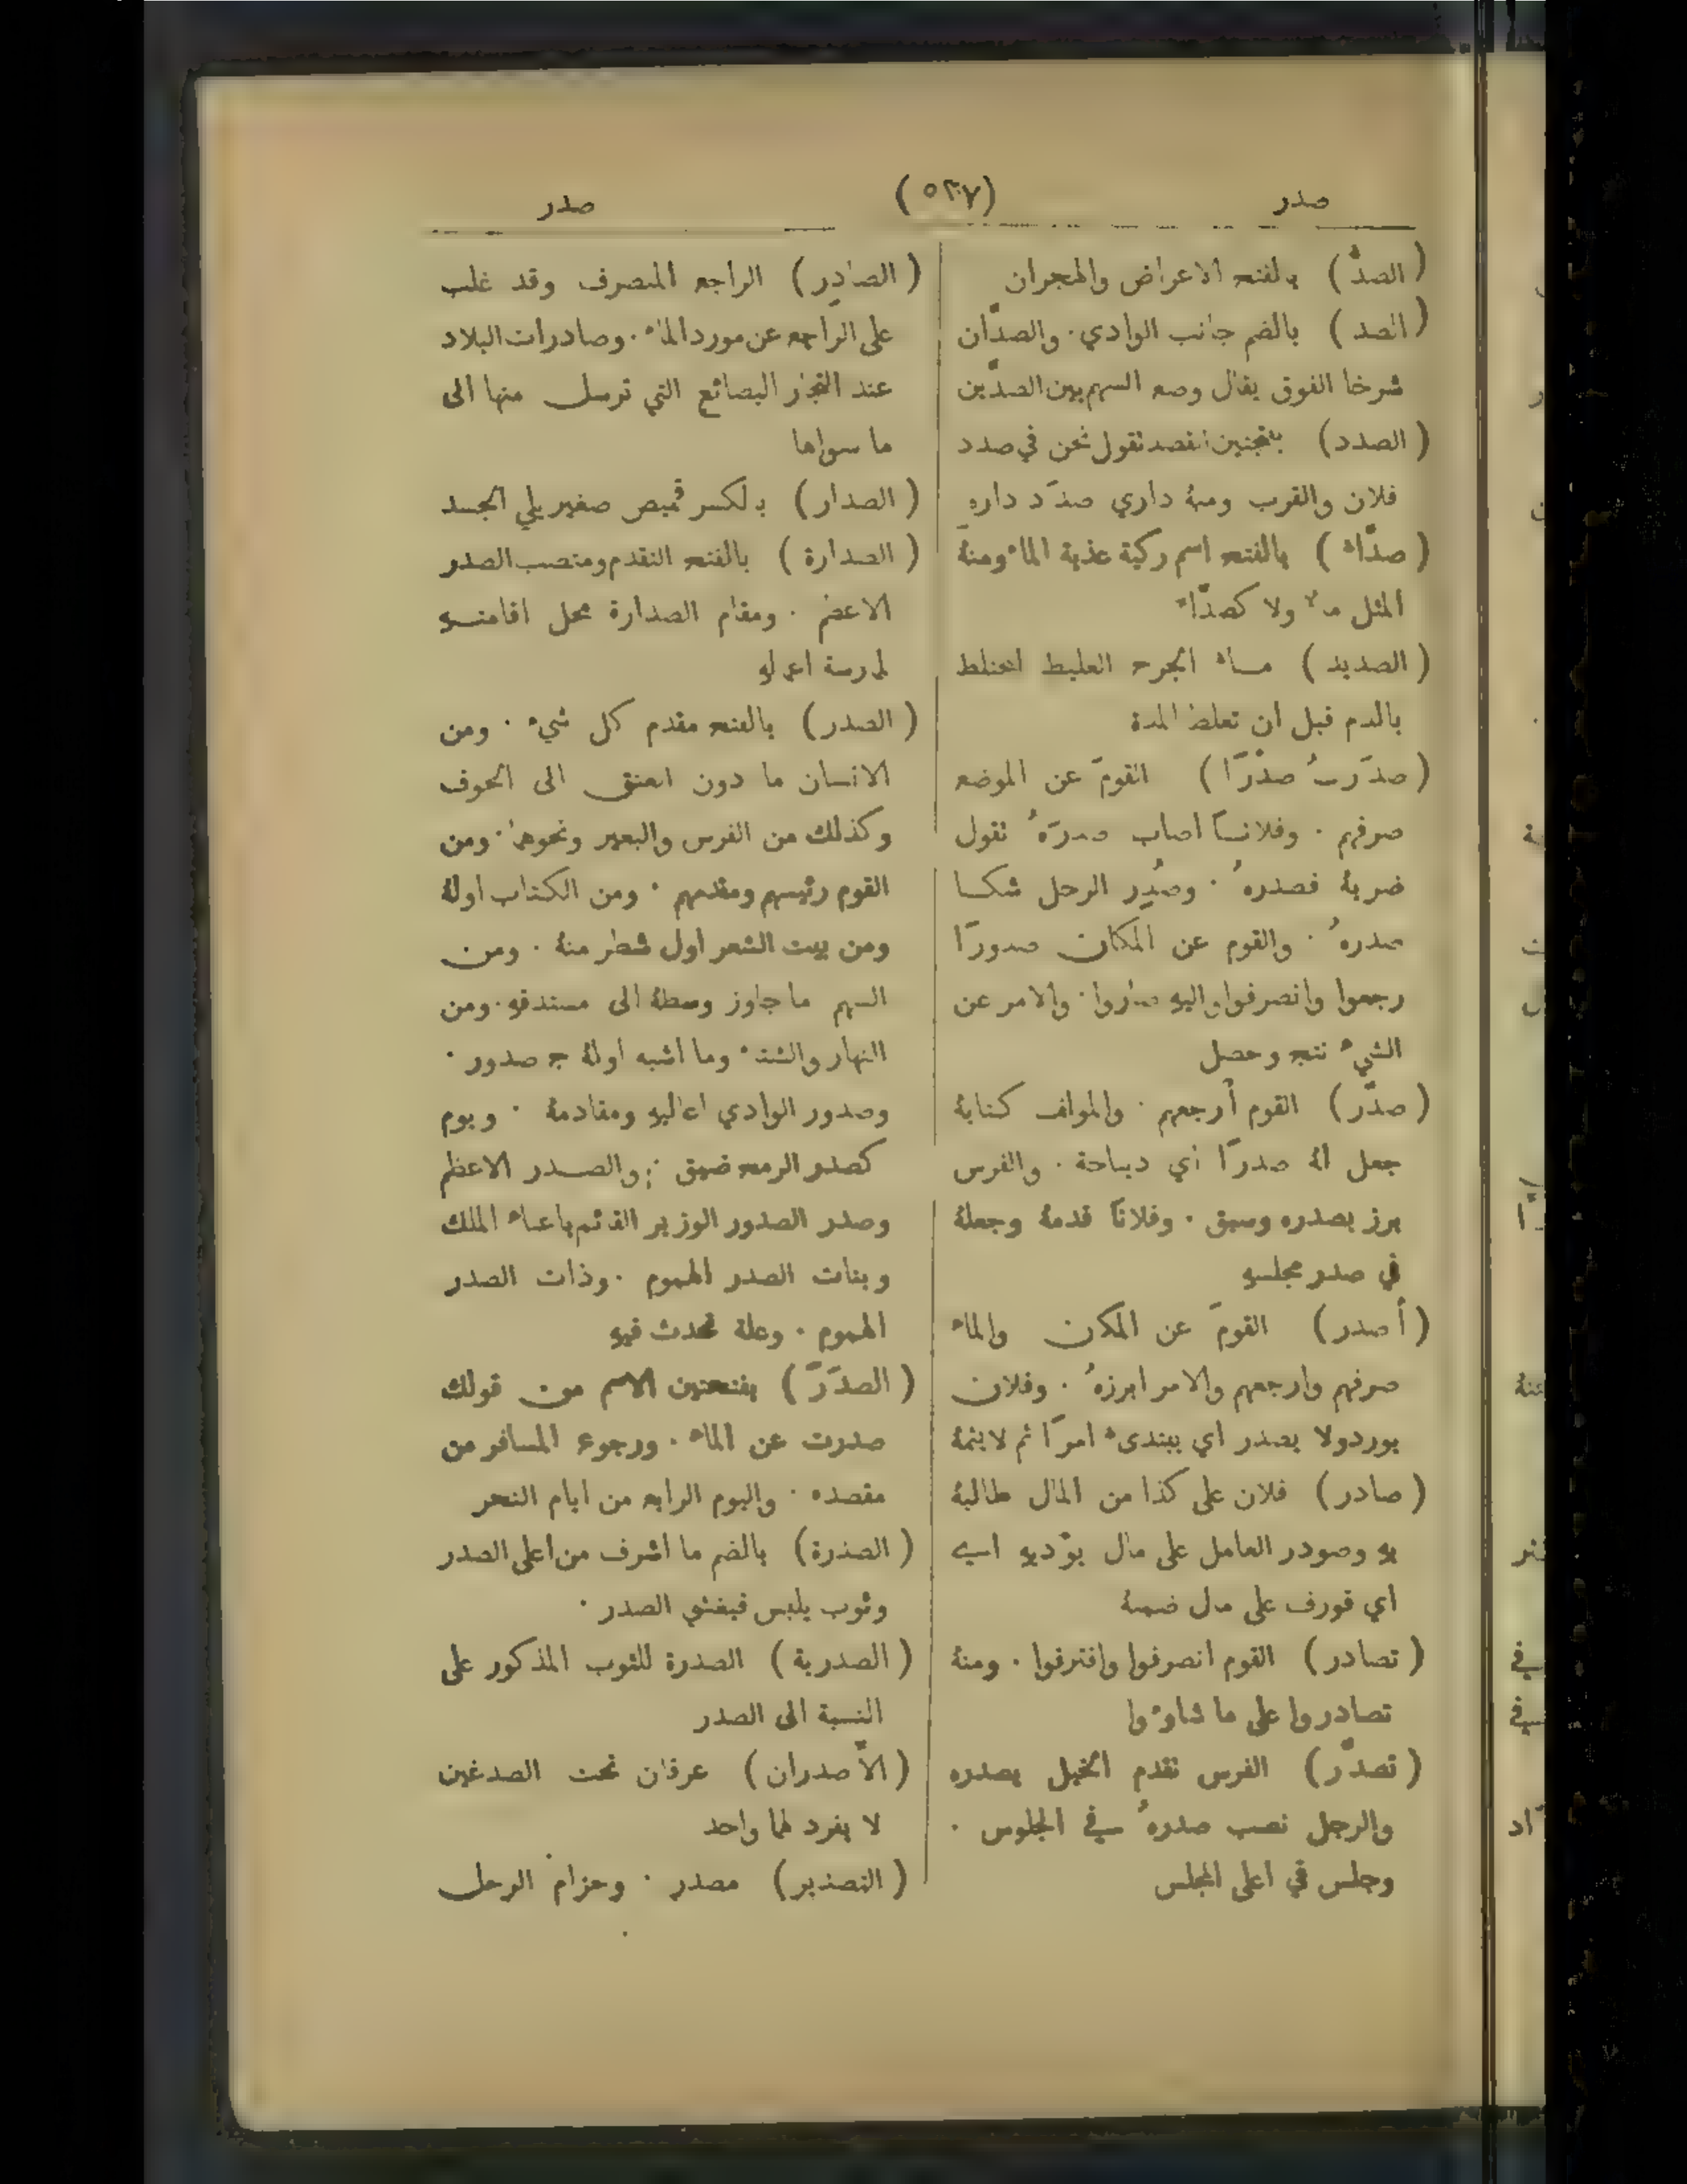 صدر
(٥٣٧)
صدر
(الصدّ) بالفتح الاعراض والهجران
(الصد) بالضم جانب الوادي. والصدّان
شرخا الفوق يقال وضع السهم بين الصدّين
(الصدد) بفتحتين القصد تقول نحن في صدد
فلان والقرب ومنهُ داري صدَد دارهِ
(صدّاء) بالفتح اسم ركية عذبة الماء ومنهُ
المثل ماء ولا كصدّاء
(الصديد) ماء الجرح الغليظ المختلط
بالدم قبل ان تغلظ المدة
(صدَرت صدْرًا) القومَ عن الموضع
صرفهم . وفلانًا اصاب صدرَهُ تقول
ضربهُ فصدرهُ . وصُدِر الرجل شكا
صدرهُ . والقوم عن المكان صدورًا
رجعوا وانصرفوا واليهِ صاروا . والامر عن
الشيء نتج وحصل
(صدّر) القوم أرجعهم . والمولف كتابهُ
جعل لهُ صدرًا اي ديباجة . والفرس
برز بصدره وسبق . وفلانًا قدمهُ وجعلهُ
في صدر مجلسهِ
(أصدر) القومَ عن المكان والماء
صرفهم وارجعهم والامر ابرزهُ . وفلان
يورد ولا يصدر اي يبتدىء امرًا ثم لا يتمهُ
(صادر) فلان على كذا من المال طالبهُ
بهِ وصودر العامل على مال يوَّديهِ اي
اي قورف على مال ضمنهُ
(تصادر) القوم انصرفوا وافترقوا . ومنهُ
تصادروا على ما شاوءُوا
(تصدّر) الفرس تقدم الخيل بصدره
والرجل نصب صدرهُ في الجلوس .
وجلس في اعلى المجلس
(الصادِر) الراجع المنصرف وقد غلب
على الراجع عن مورد الماء . وصادرات البلاد
عند التجار البضائع التي ترسل منها الى
ما سواها
(الصدار) بالكسر قميص صغير يلي الجسد
(الصدارة) بالفتح التقدم ومنصب الصدر
الاعظم . ومقام الصدارة محل اقامتهِ
لمدرسة اعمالهِ
(الصدر) بالفتح مقدم كل شيء . ومن
الانسان ما دون العنق الى الجوف
وكذلك من الفرس والبعير ونحوهما . ومن
القوم رئيسهم ومقدمهم . ومن الكتاب اولهُ
ومن بيت الشعر اول شطر منهُ . ومن
السهم ما جاوز وسطهُ الى مستدقهِ . ومن
النهار والشتاء وما اشبه اولهُ ج صدور .
وصدور الوادي اعاليهِ ومقادمهُ . ويوم
كصدر الرمح ضيق . والصدر الاعظم
وصدر الصدور الوزير القائم باعباء الملك
وبنات الصدر الهموم . وذات الصدر
الهموم . وعلة تحدث فيهِ
(الصدَرَ) بفتحتين الاسم من قولك
صدرت عن الماء . ورجوع المسافر من
مقصده . واليوم الرابع من ايام النحر
(الصدرة) بالضم ما اشرف من اعلى الصدر
وثوب يلبس فيغشي الصدر .
(الصدرية) الصدرة للثوب المذكور على
النسبة الى الصدر
(الأصدران) عرقان تحت الصدغين
لا يفرد لهما واحد
(التصدير) مصدر . وحزام الرحل